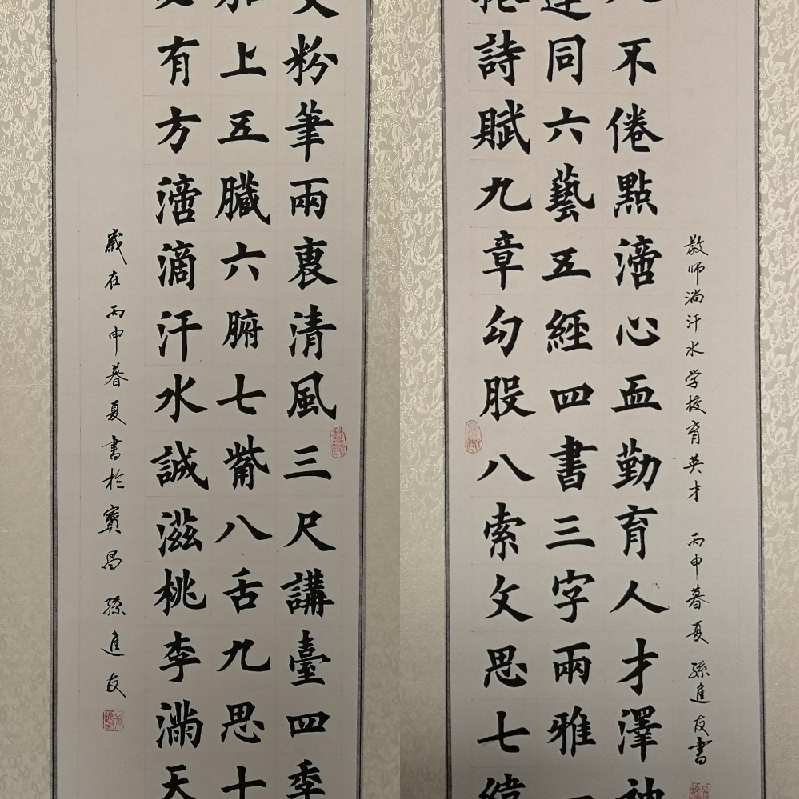 敬师淌汗水学校育英才 丙申暮夏 孫進友書
不倦點滴心血勤育人才澤神
連同六藝五經四書三字兩雅
詩賦九章勾股八索文思七緯
粉筆兩裏清風三尺講臺四季
加上五臟六腑七觜八舌九思十
有方滴滴汗水誠滋桃李滿天
歲在丙申暮夏書於寶昌 孫進友